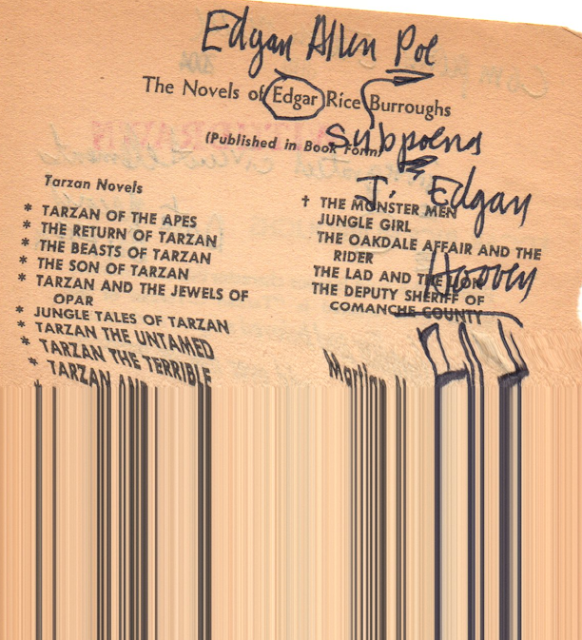 Edgar Allen Poe
The Novels of Edgar Rice Burroughs
(Published in Book Form)
subpoena
J. Edgar
Hoover
Tarzan Novels
* TARZAN OF THE APES
* THE RETURN OF TARZAN
* THE BEASTS OF TARZAN
* THE SON OF TARZAN
* TARZAN AND THE JEWELS OF
OPAR
* JUNGLE TALES OF TARZAN
* TARZAN THE UNTAMED
* TARZAN THE TERRIBLE
* TARZAN AND
† THE MONSTER MEN
JUNGLE GIRL
THE OAKDALE AFFAIR AND THE
RIDER
THE LAD AND THE LION
THE DEPUTY SHERIFF OF
COMANCHE COUNTY
Martian